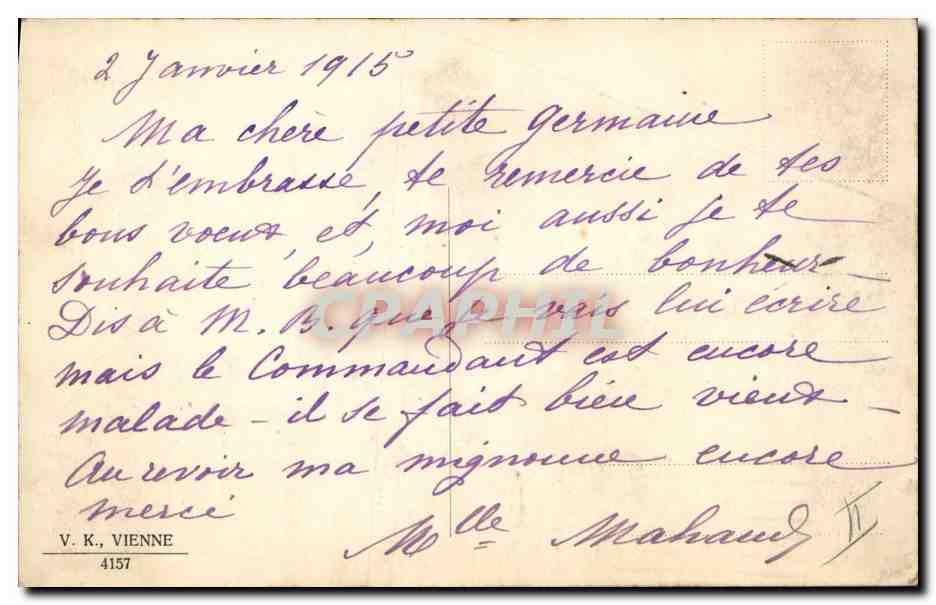 2 Janvier 1915
Ma chère petite Germaine
Je t'embrasse, te remercie de tes
bons voeux, et, moi aussi je te
souhaite beaucoup de bonheur -
Dis à M. B. que je vais lui écrire
mais le Commandant est encore
malade - il se fait bien vieux -
Au revoir ma mignonne encore
merci
Mlle Mahaud
II
V. K., VIENNE
4157
CPAPHIL